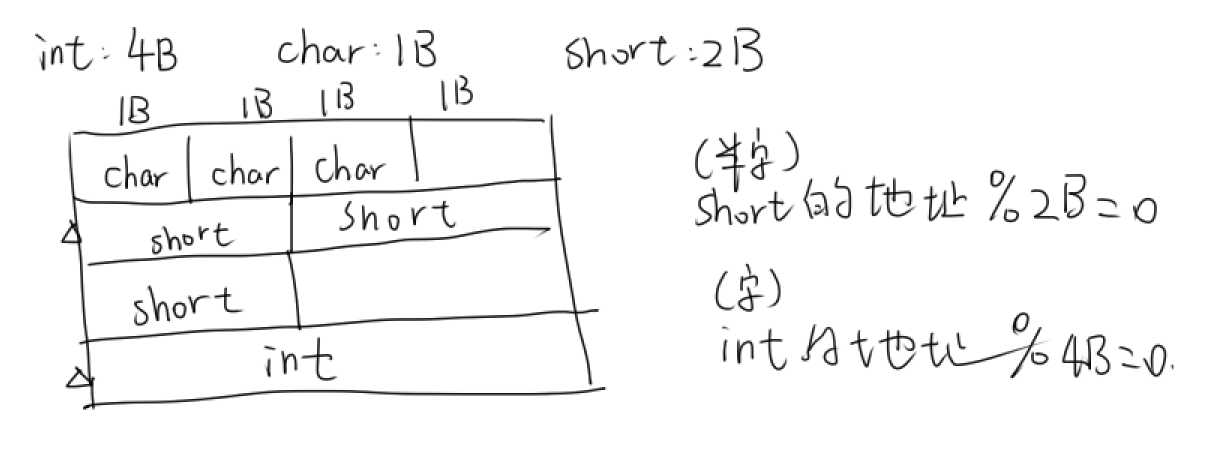 int: 4B char: 1B short: 2B
1B 1B 1B 1B
char char char
short short
short
int
(半字)
short的地址 % 2B = 0
(字)
int的地址 % 4B = 0.